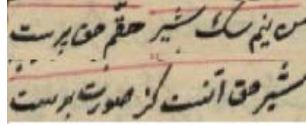 من نیم سک شیر حقم حق پرست
شیر حق آنست کز صورت برست